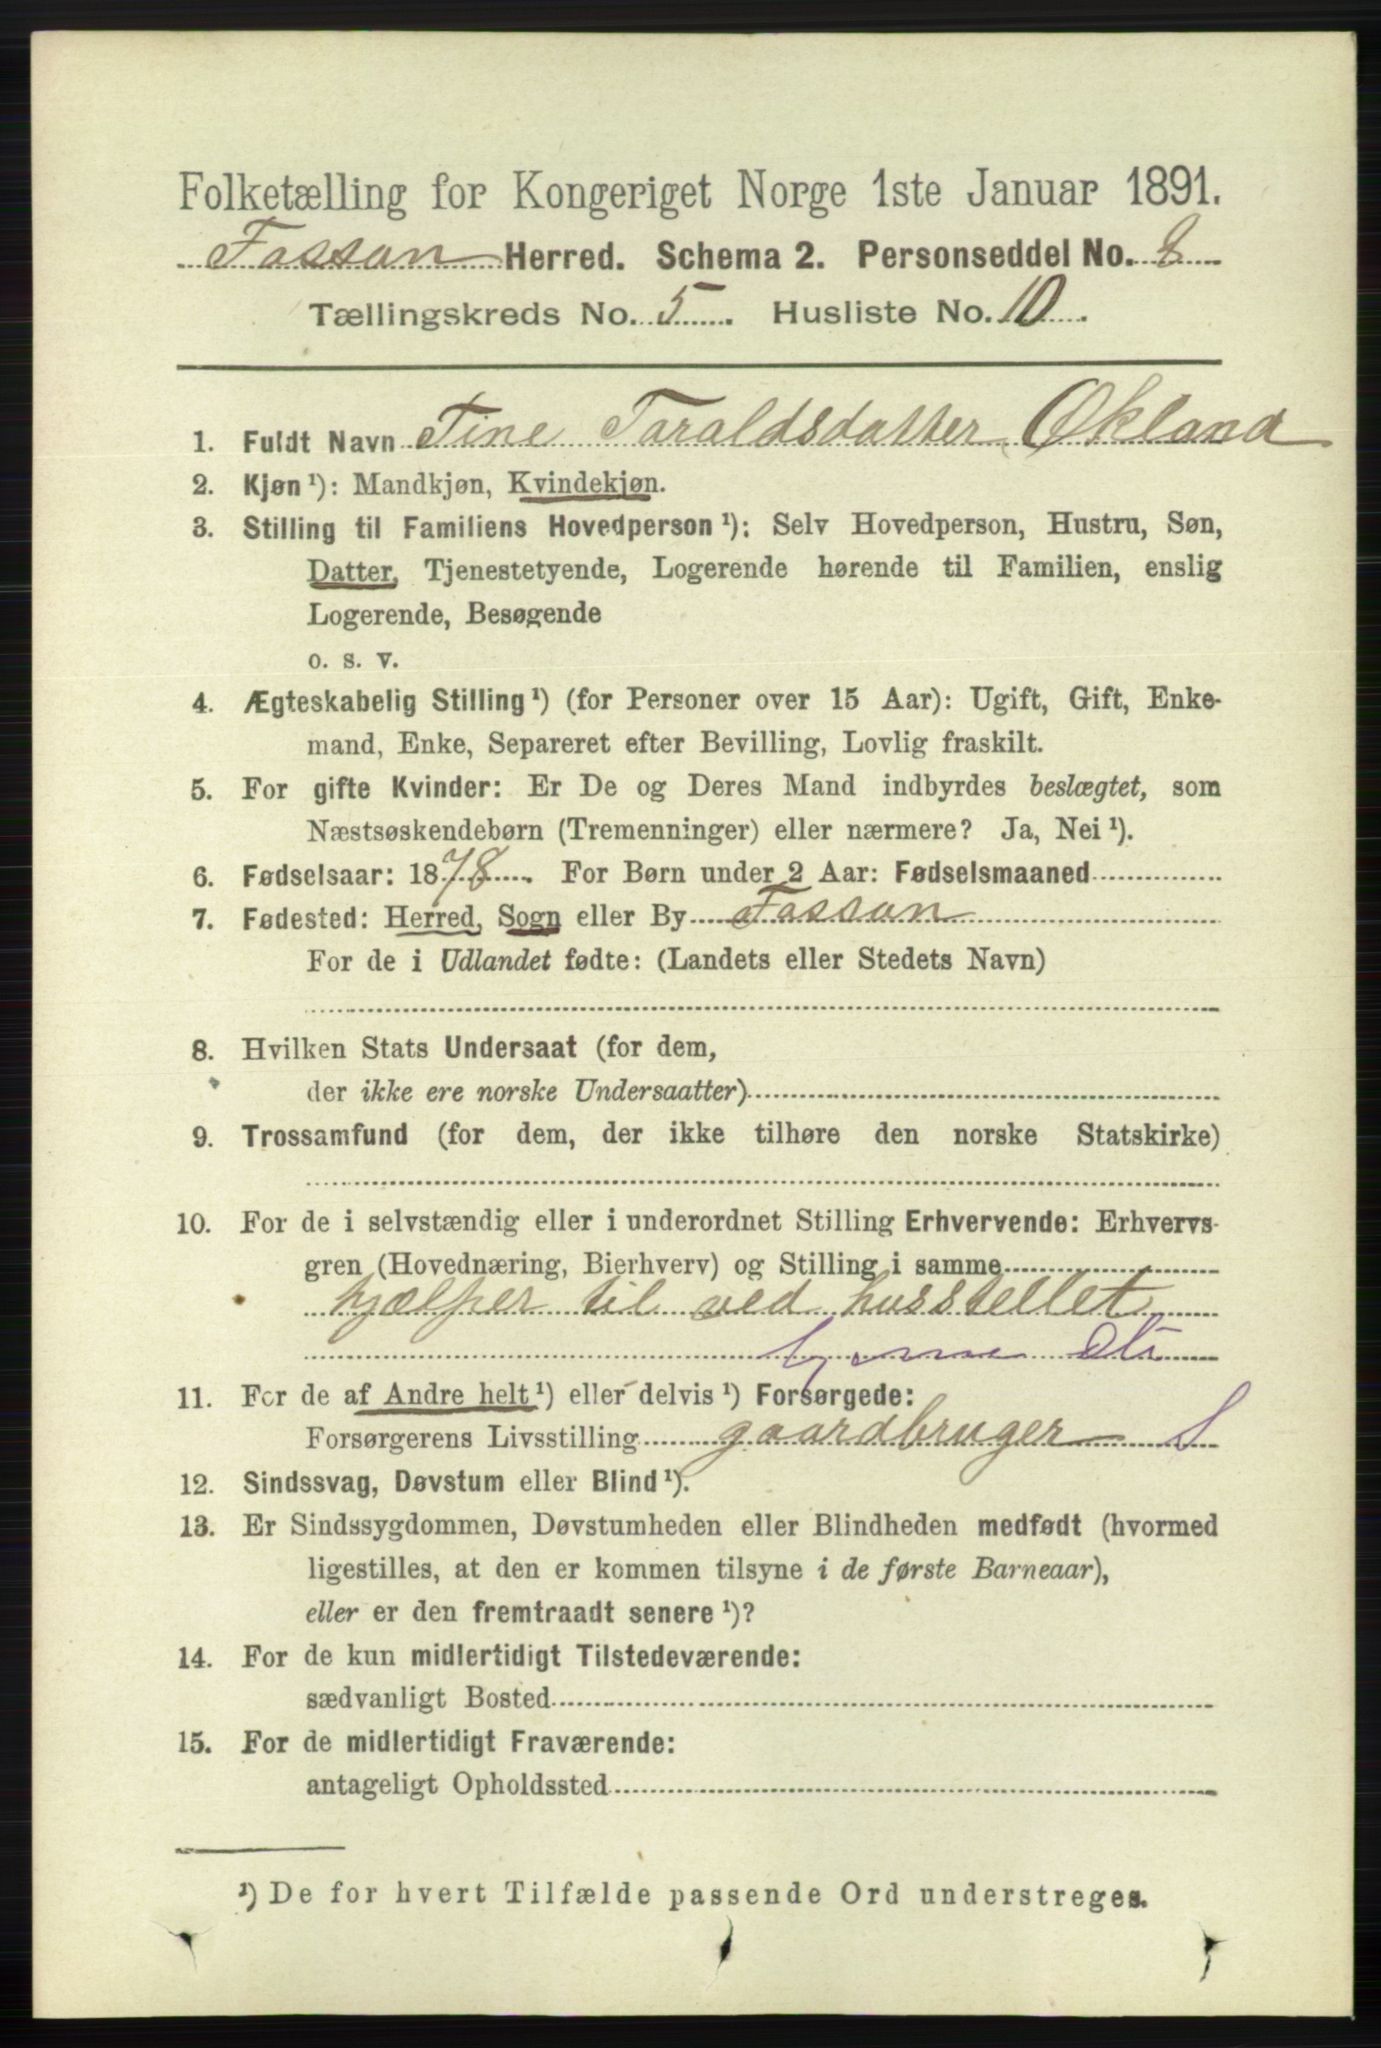 Folketælling for Kongeriget Norge 1ste Januar 1891.
Fossan Herred. Schema 2. Personseddel No. 8
Tællingskreds No. 5. Husliste No. 10.
1. Fuldt Navn Tine Taraldsdatter Økland
2. Kjøn¹): Mandkjøn, Kvindekjøn.
3. Stilling til Familiens Hovedperson¹): Selv Hovedperson, Hustru, Søn,
Datter, Tjenestetyende, Logerende hørende til Familien, enslig
Logerende, Besøgende
o. s. v.
4. Ægteskabelig Stilling¹) (for Personer over 15 Aar): Ugift, Gift, Enke-
mand, Enke, Separeret efter Bevilling, Lovlig fraskilt.
5. For gifte Kvinder: Er De og Deres Mand indbyrdes beslægtet, som
Næstsøskendebørn (Tremenninger) eller nærmere? Ja, Nei¹).
6. Fødselsaar: 1878. For Børn under 2 Aar: Fødselsmaaned
7. Fødested: Herred, Sogn eller By Fossan
For de i Udlandet fødte: (Landets eller Stedets Navn)
8. Hvilken Stats Undersaat (for dem,
der ikke ere norske Undersaatter)
9. Trossamfund (for dem, der ikke tilhøre den norske Statskirke)
10. For de i selvstændig eller i underordnet Stilling Erhvervende: Erhvervs-
gren (Hovednæring, Bierhverv) og Stilling i samme
hjælper til ved husstellet
11. For de af Andre helt¹) eller delvis¹) Forsørgede:
Forsørgerens Livsstilling gaardbruger S
12. Sindssvag, Døvstum eller Blind¹).
13. Er Sindssygdommen, Døvstumheden eller Blindheden medfødt (hvormed
ligestilles, at den er kommen tilsyne i de første Barneaar),
eller er den fremtraadt senere¹)?
14. For de kun midlertidigt Tilstedeværende:
sædvanligt Bosted
15. For de midlertidigt Fraværende:
antageligt Opholdssted
¹) De for hvert Tilfælde passende Ord understreges.